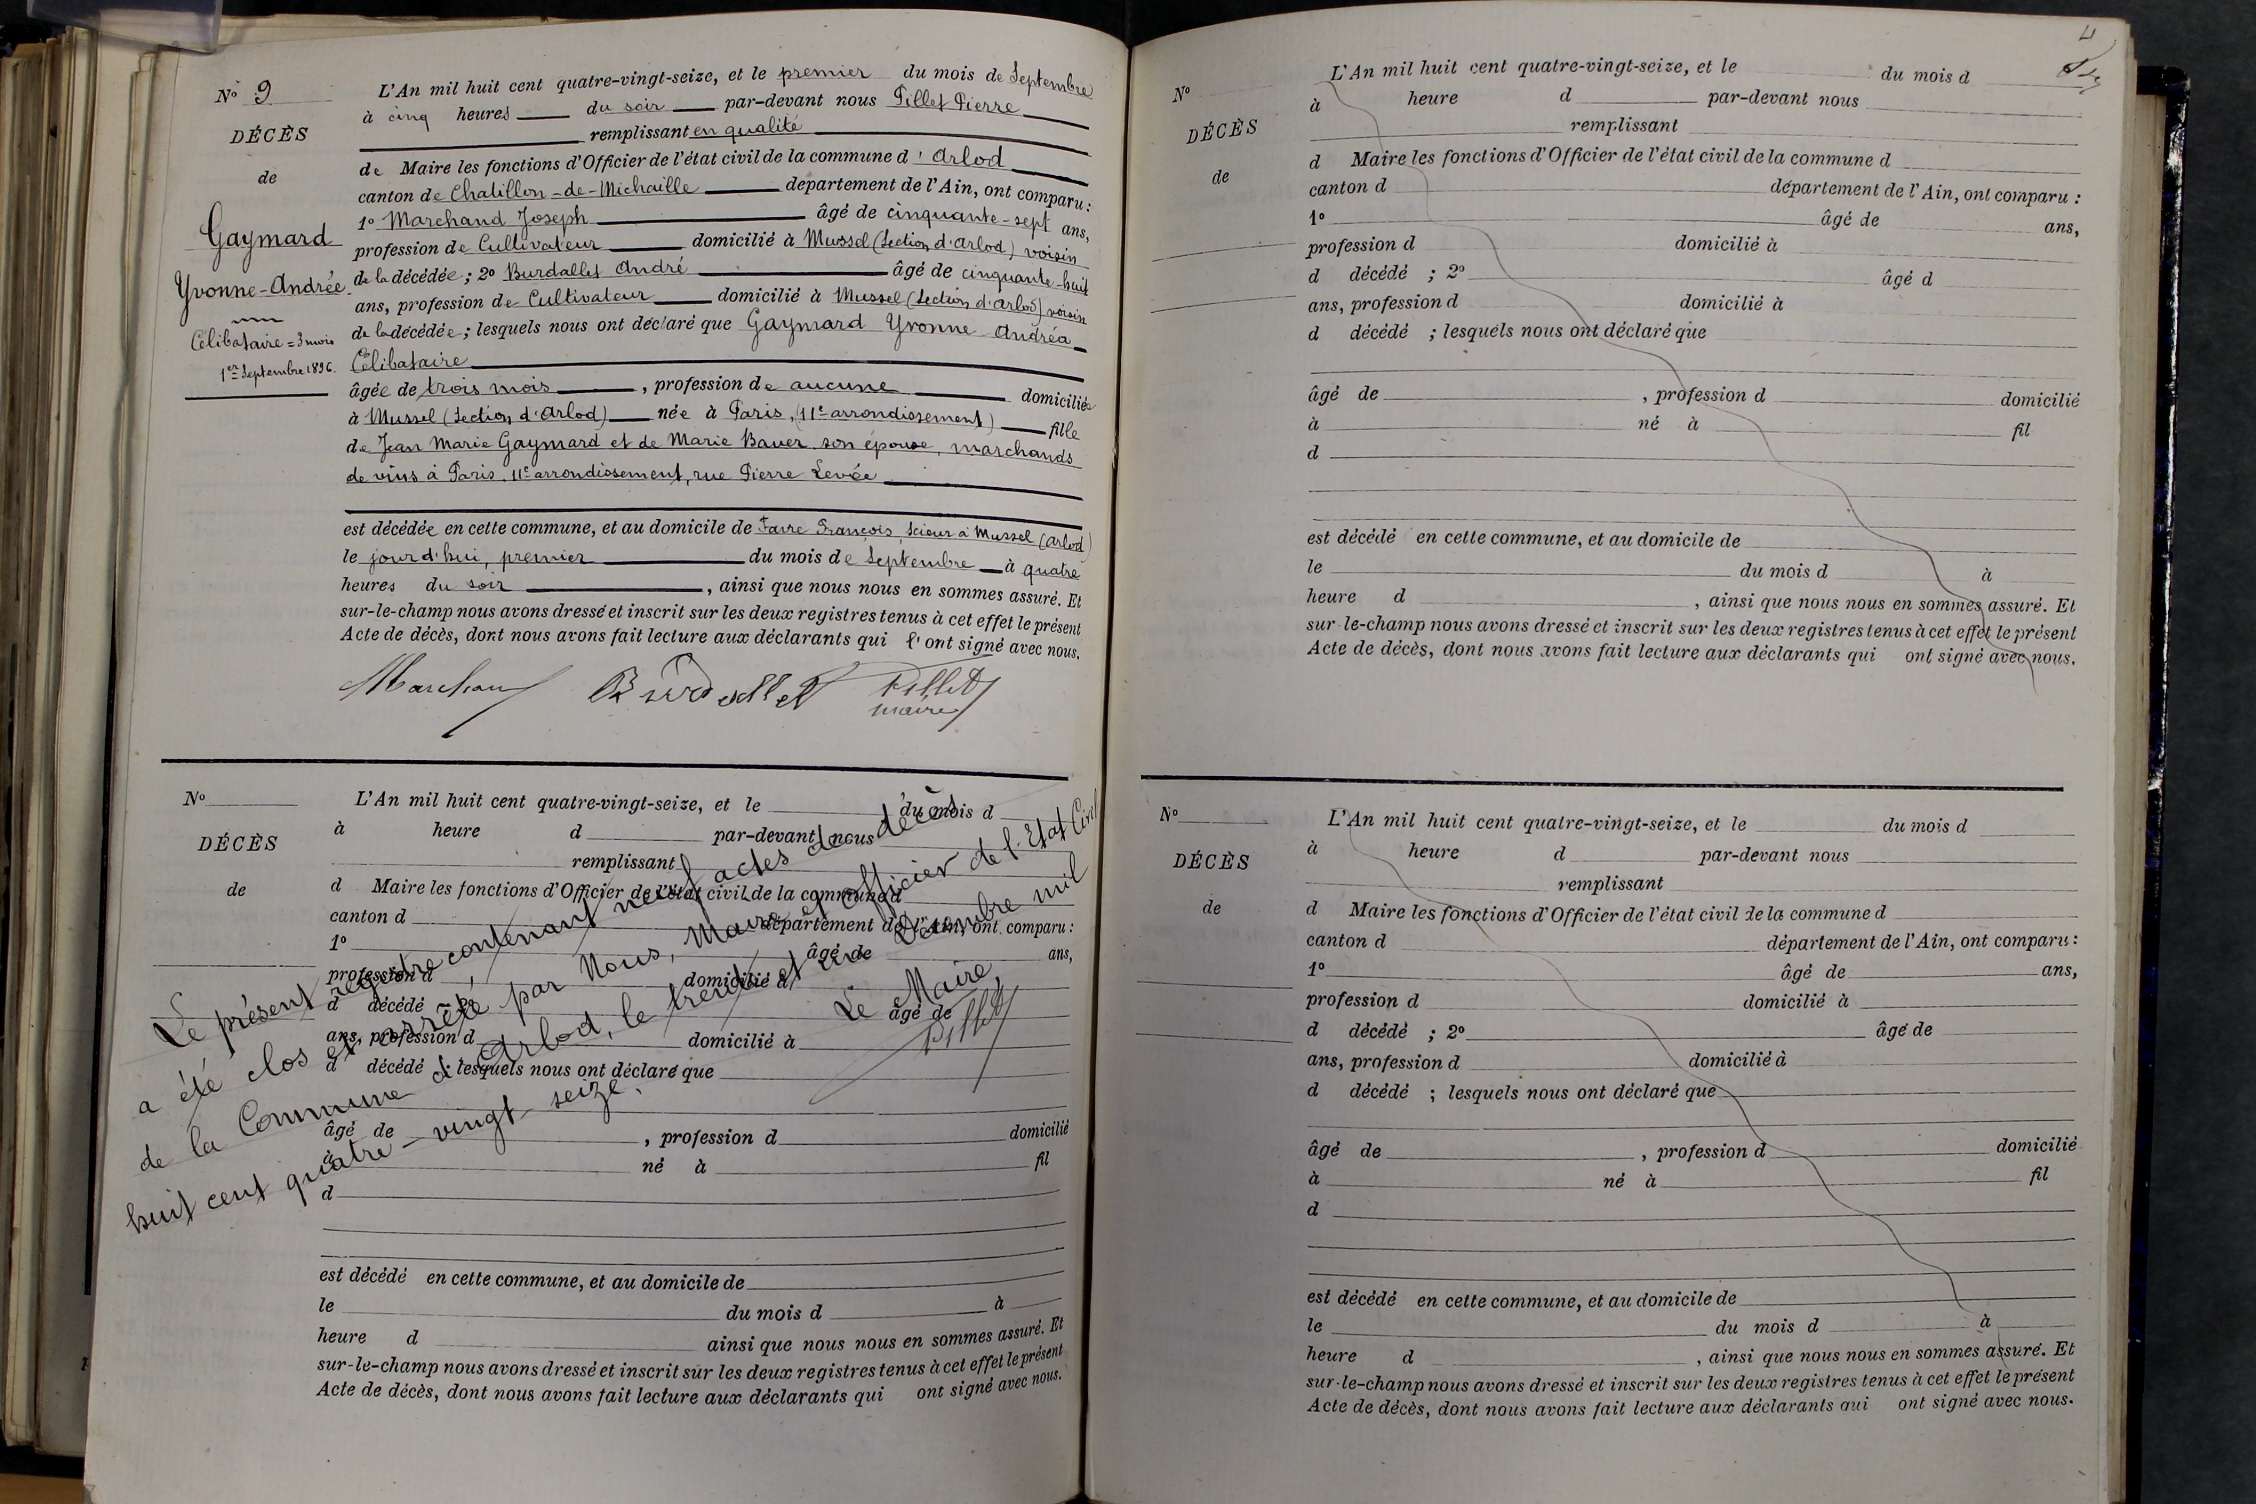 N° 9
DÉCÈS
de
Gaymard
Yvonne-Andrée
Célibataire = 3 mois
1er Septembre 1896.
L'An mil huit cent quatre-vingt-seize, et le premier du mois de Septembre
à cinq heures du soir par-devant nous Pillet Pierre
remplissant en qualité
de Maire les fonctions d'Officier de l'état civil de la commune d'Arlod
canton de Chatillon-de-Michaille département de l'Ain, ont comparu :
1° Marchand Joseph âgé de cinquante-sept ans,
profession de Cultivateur domicilié à Mussel (Section d'Arlod) voisin
de la décédée ; 2° Burdallet André âgé de cinquante-huit
ans, profession de Cultivateur domicilié à Mussel (Section d'Arlod) voisin
de la décédée ; lesquels nous ont déclaré que Gaymard Yvonne Andréa
Célibataire
âgée de trois mois, profession de aucune domiciliée
à Mussel (Section d'Arlod) née à Paris, (11e arrondissement) fille
de Jean Marie Gaymard et de Marie Bauer son épouse, marchands
de vins à Paris, 11e arrondissement, rue Pierre Levée
est décédée en cette commune, et au domicile de Favre François, Scieur à Mussel (Arlod)
le jourd'hui, premier du mois de Septembre à quatre
heures du soir, ainsi que nous nous en sommes assuré. Et
sur-le-champ nous avons dressé et inscrit sur les deux registres tenus à cet effet le présent
Acte de décès, dont nous avons fait lecture aux déclarants qui l'ont signé avec nous.
Marchand Burdallet Pillet
maire
N°
DÉCÈS
de
L'An mil huit cent quatre-vingt-seize, et le du mois d
à heure d par-devant nous
remplissant
d Maire les fonctions d'Officier de l'état civil de la commune d
canton d département de l'Ain, ont comparu :
1° âgé de ans,
profession d domicilié à
d décédé ; 2° âgé de
ans, profession d domicilié à
d décédé ; lesquels nous ont déclaré que
âgé de , profession d domicilié
à né à fil
d
est décédé en cette commune, et au domicile de
le du mois d à
heure d ainsi que nous nous en sommes assuré. Et
sur-le-champ nous avons dressé et inscrit sur les deux registres tenus à cet effet le présent
Acte de décès, dont nous avons fait lecture aux déclarants qui ont signé avec nous.
Le présent registre contenant neuf actes de décès
a été clos et arrêté par Nous, Maire et Officier de l'Etat Civil
de la Commune d'Arlod, le trente et un Décembre mil
huit cent quatre-vingt-seize.
Le Maire,
Pillet
4
N°
DÉCÈS
de
L'An mil huit cent quatre-vingt-seize, et le du mois d
à heure d par-devant nous
remplissant
d Maire les fonctions d'Officier de l'état civil de la commune d
canton d département de l'Ain, ont comparu :
1° âgé de ans,
profession d domicilié à
d décédé ; 2° âgé d
ans, profession d domicilié à
d décédé ; lesquels nous ont déclaré que
âgé de , profession d domicilié
à né à fil
d
est décédé en cette commune, et au domicile de
le du mois d à
heure d , ainsi que nous nous en sommes assuré. Et
sur-le-champ nous avons dressé et inscrit sur les deux registres tenus à cet effet le présent
Acte de décès, dont nous avons fait lecture aux déclarants qui ont signé avec nous.
N°
DÉCÈS
de
L'An mil huit cent quatre-vingt-seize, et le du mois d
à heure d par-devant nous
remplissant
d Maire les fonctions d'Officier de l'état civil de la commune d
canton d département de l'Ain, ont comparu :
1° âgé de ans,
profession d domicilié à
d décédé ; 2° âgé de
ans, profession d domicilié à
d décédé ; lesquels nous ont déclaré que
âgé de , profession d domicilié
à né à fil
d
est décédé en cette commune, et au domicile de
le du mois d à
heure d , ainsi que nous nous en sommes assuré. Et
sur-le-champ nous avons dressé et inscrit sur les deux registres tenus à cet effet le présent
Acte de décès, dont nous avons fait lecture aux déclarants qui ont signé avec nous.